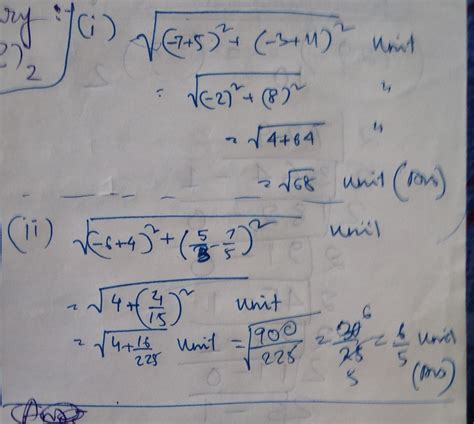 ry :-
2)₂
(i) √((-7+5)² + (-3+11)²) unit
= √((-2)² + (8)²) "
= √(4+64) "
= √68 unit (Ans)
(ii) √((-6+4)² + (5/3 - 7/5)²) unit
= √(4+(4/15)²) unit
= √(4+16/225) unit = √(900/225) = 30/25 6 5 = 6/5 unit
(Ans)